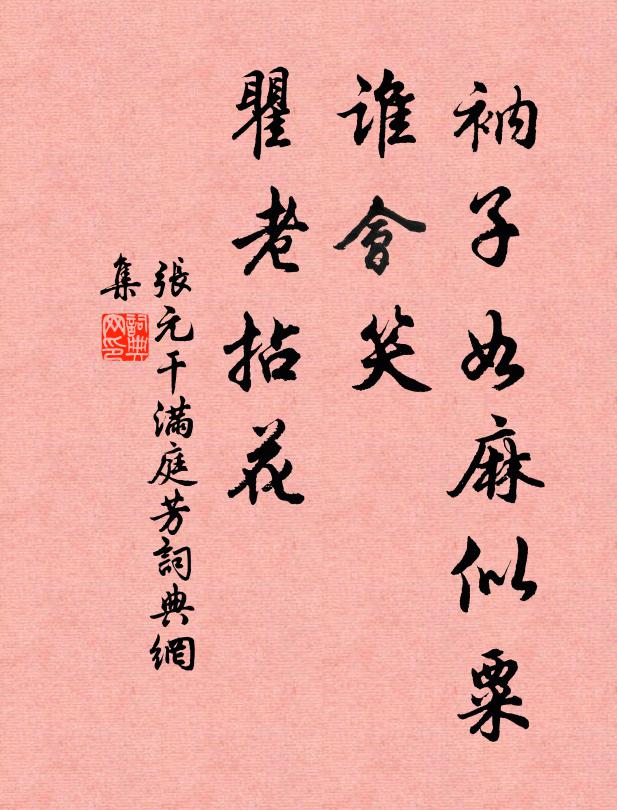 衲子如麻似粟
誰會笑
瞿老拈花
張元干滿庭芳詞典網
集
詞典
网印